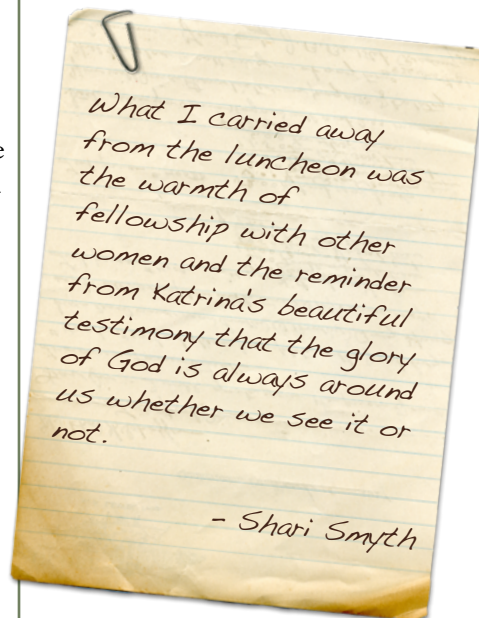 What I carried away
from the luncheon was
the warmth of
fellowship with other
women and the reminder
from Katrina's beautiful
testimony that the glory
of God is always around
us whether we see it or
not.
- Shari Smyth